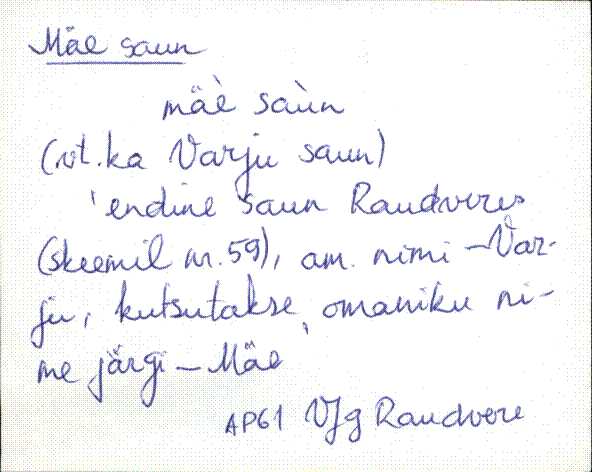 Mäe saun
mäè saùn
(vt. ka Varju saun)
'endine saun Raudveres
(skeemil nr. 59), am. nimi - Var-
ju, kutsutakse omaniku ni-
me järgi - Mäe
AP61 VJg Raudvere